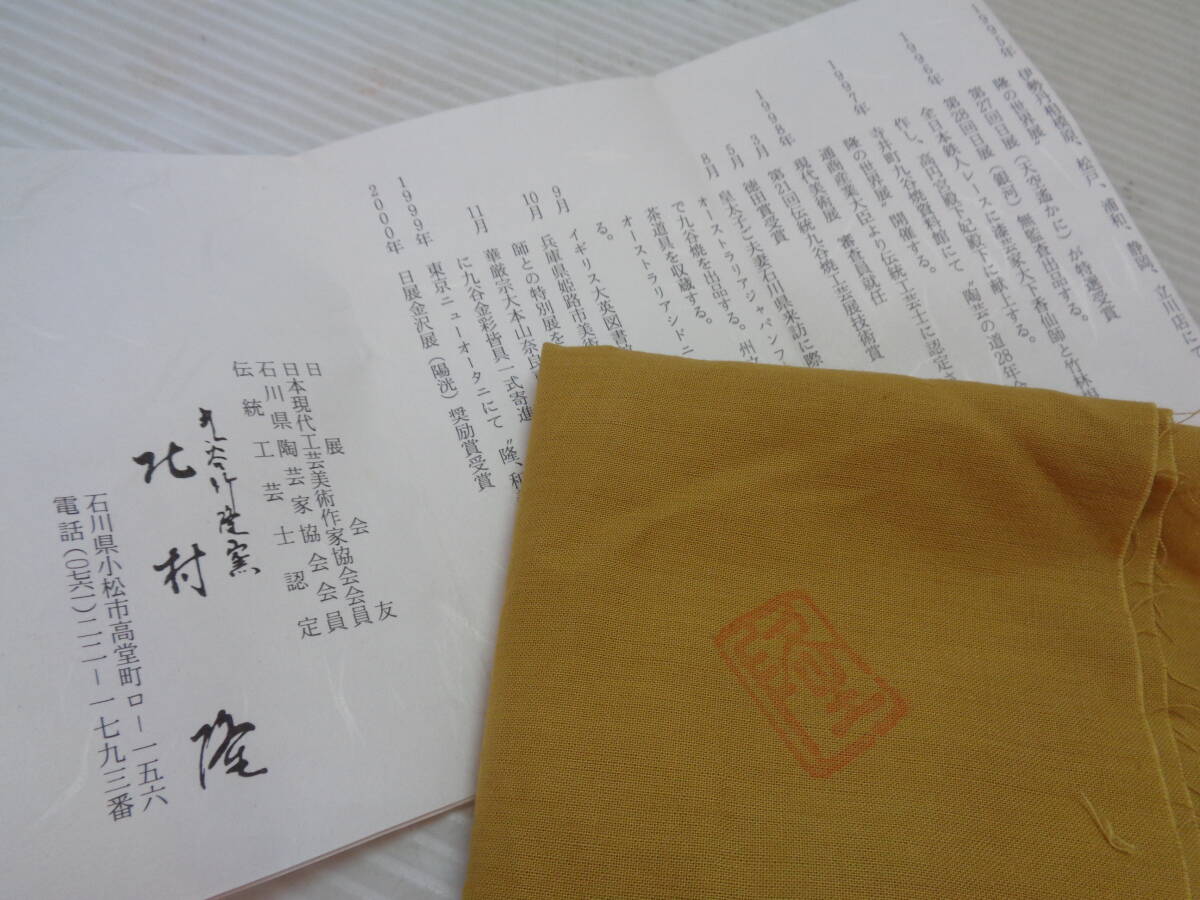 1995年 伊勢丹相模原、松戸、浦和、静岡、立川店に
隆の世界〟
第27回日展(天空遙かに)が特選受賞
1996年 第28回日展(銀河)無監査出品する。
全日本鉄人レースに漆芸家大下香仙師と竹林
作し、高円宮殿下妃殿下に献上する。
1997年 寺井町九谷焼資料館にて〝陶芸の道28年
隆の世界展〟開催する。
通商産業大臣より伝統工芸士に認定
1998年 現代美術展 審査員就任
第21回伝統九谷焼工芸展技術賞
3月 徳田賞受賞
5月 皇太子ご夫妻石川県来訪に際
8月 オーストラリアジャパンフ
で九谷焼を出品する。州
オーストラリアシドニ
茶道具を収蔵する。
9月 イギリス大英図書
る。
10月 兵庫県姫路市美術
師との特別展を
11月 華厳宗大本山奈良
に九谷金彩皆具一式寄進
1999年 東京ニューオータニにて〝隆、和
2000年 日展金沢展(陽洸)奨励賞受賞
日展会友
日本現代工芸美術作家協会会員
石川県陶芸家協会会員
伝統工芸士認定
九谷作隆窯
北村隆
石川県小松市高堂町ロ−一五六
電話(〇七六一)二二−一七九三番